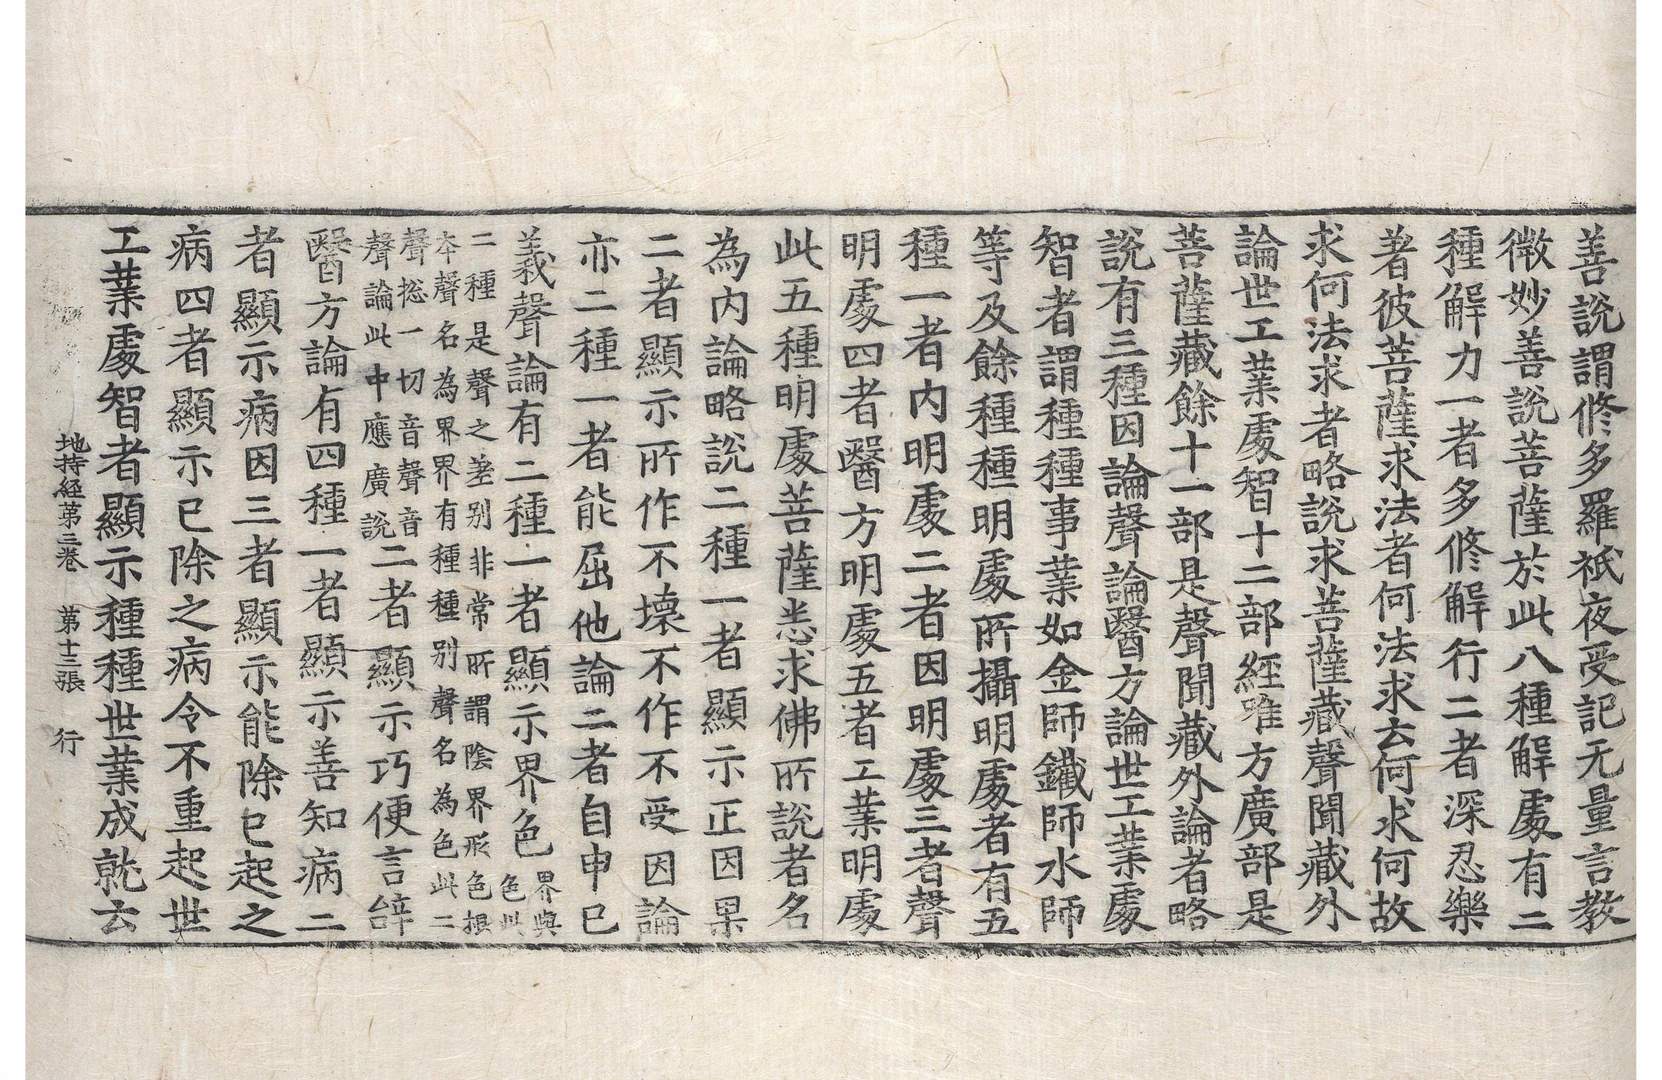 善說謂修多羅祇夜受記无量言教
微妙善說菩薩於此八種解處有二
種解力一者多修解行二者深忍樂
著彼菩薩求法者何法求云何求何故
求何法求者略說求菩薩藏聲聞藏外
論世工業處智十二部經唯方廣部是
菩薩藏餘十一部是聲聞藏外論者略
說有三種因論聲論醫方論世工業處
智者謂種種事業如金師鐵師水師
等及餘種種明處所攝明處者有五
種一者內明處二者因明處三者聲
明處四者醫方明處五者工業明處
此五種明處菩薩悉求佛所說者名
為內論略說二種一者顯示正因果
二者顯示所作不壞不作不受因論
亦二種一者能屈他論二者自申已
義聲論有二種一者顯示界色界與
色此
二種是聲之差别非常所謂陰界形色損
本聲名為界界有種種别聲名為色此二
聲揔一切音聲音
聲論此中應廣說二者顯示巧便言辝
醫方論有四種一者顯示善知病二
者顯示病因三者顯示能除已起之
病四者顯示已除之病令不重起世
工業處智者顯示種種世業成就云
地持経苐三卷　苐十三張　行